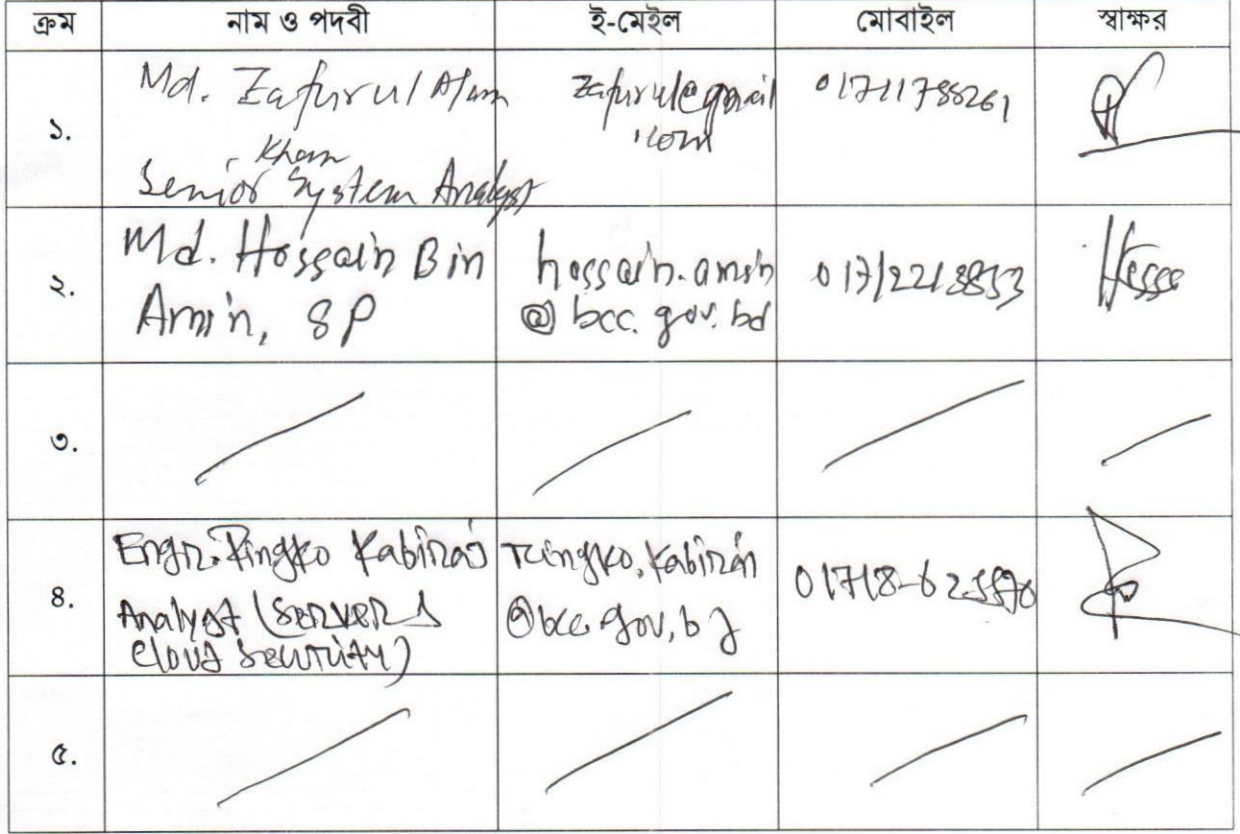 ক্রম নাম ও পদবী ই-মেইল মোবাইল স্বাক্ষর
১.
Md. Zafurul Alam
Khan
Senior System Analyst
zafurul@gmail
.com
২.
Md. Hossain Bin
Amin, SP
hossain.amin
@bcc.gov.bd
৩.
৪.
Engr. Ringko Kabiraj
Analyst (Server &
Cloud Security)
ringko.kabiraj
@bcc.gov.bd
৫.